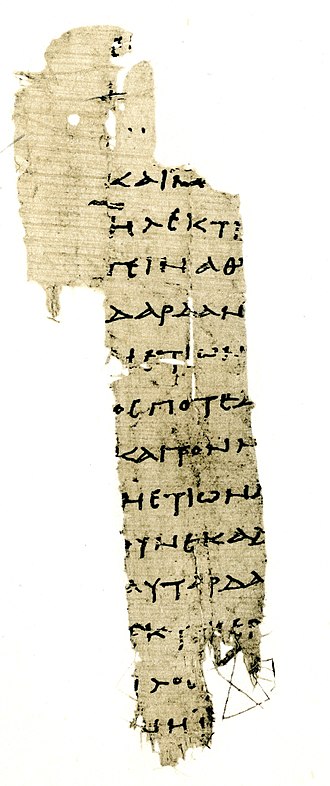 ΚΑΙ
ΗΛΕΚΤΡ
ΓΕΙΝΑΘ
ΔΑΡΔΑΝ
ΗΕΤΙΩΝ
ΟϹΠΟΤΕΔ
ΚΑΙΤΟΝ
ΗΕΤΙΩΝ
ΟΥΝΕΚΑΔ
ΑΥΤΑΡΔΑ
ΕΚ
ΝΗ